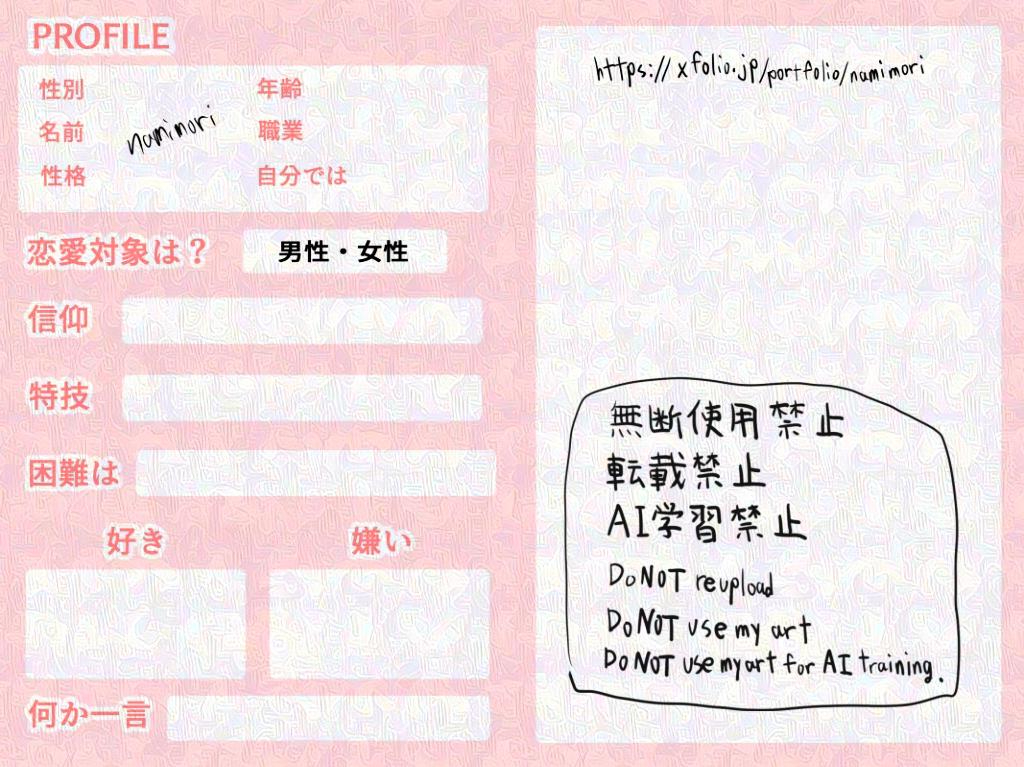 PROFILE
性別
年齢
名前
namimori
職業
性格
自分では
恋愛対象は？
男性・女性
信仰
特技
困難は
好き
嫌い
何か一言
https://xfolio.jp/portfolio/namimori
無断使用禁止
転載禁止
AI学習禁止
Do NOT reupload
Do NOT use my art
Do NOT use my art for AI training.